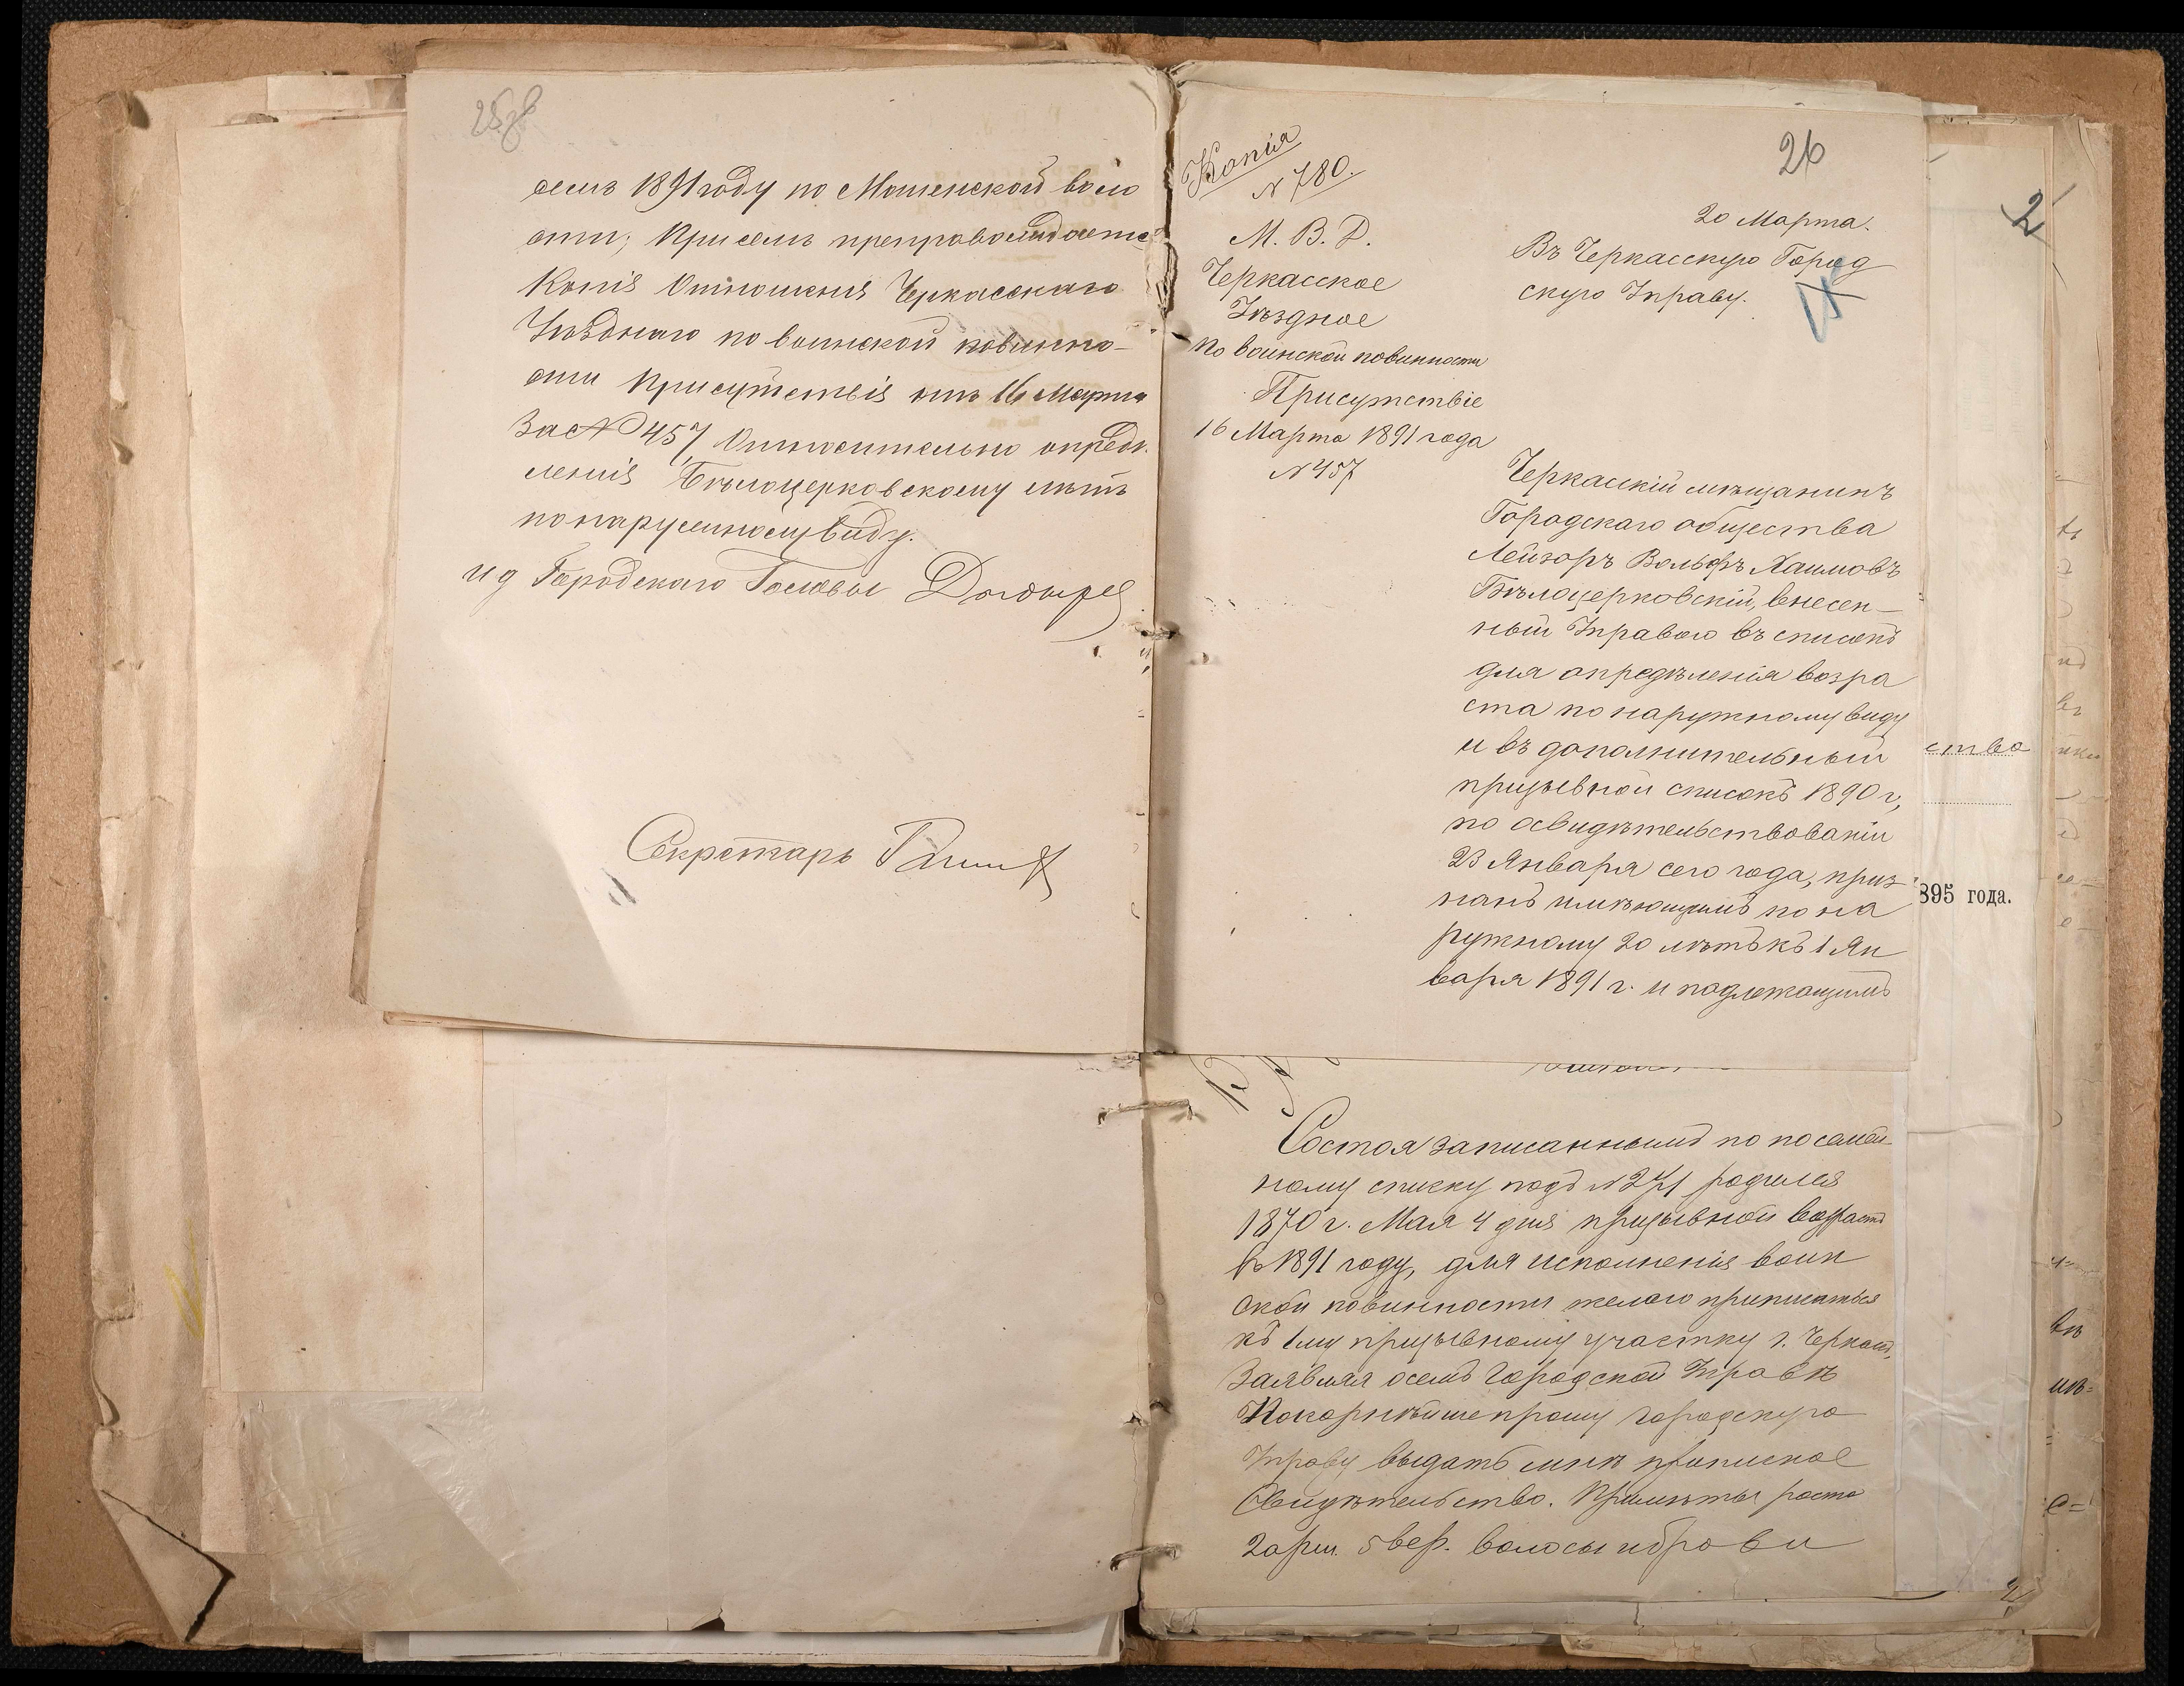 25об
семъ 1891 году по Мошенской воло
сти; При семъ препровождается
Копія Отношенія Черкасскаго
Уѣзднаго по воинской повинно-
сти Присутствія отъ 16 Марта
За № 457 Относительно опредѣ
ленія Бѣлоцерковскому лѣтъ
по наружному виду.
И д Городскаго Головы
Секретарь
26
Копія
№ 780.
М. В. Д.
Черкасское
Уѣздное
По воинской повинности
Присутствіе
16 Марта 1891 года
№ 457
20 Марта.
Въ Черкасскую Город
скую Управу.
Черкасскій мѣщанинъ
Городскаго общества
Лейзоръ Вольфъ Хаимовъ
Бѣлоцерковскій, внесен-
ный Управою въ списокъ
для опредѣленія возра
ста по наружному виду
и въ дополнительный
призывной списокъ 1890 г,
по освидѣтельствованіи
23 Января сего года, приз-
нанъ имѣющимъ по на
ружному 20 лѣтъ къ 1 Ян
варя 1891 г. и подлежащимъ
2
ство
895 года.
Состоя записаннымъ по посемей-
ному списку подъ № 271 родился
1870 г. Мая 4 дня призывной возрастъ
въ 1891 году, для исполненія воин
ской повинности желаю приписаться
къ 1му призывному участку г. Черкасъ,
Заявляя осемъ Городской Управѣ
Покорнѣйше прошу Городскую
Управу выдать мнѣ приписное
Свидѣтельство. Примѣты роста
2 арш. 5 вер. волосы и брови